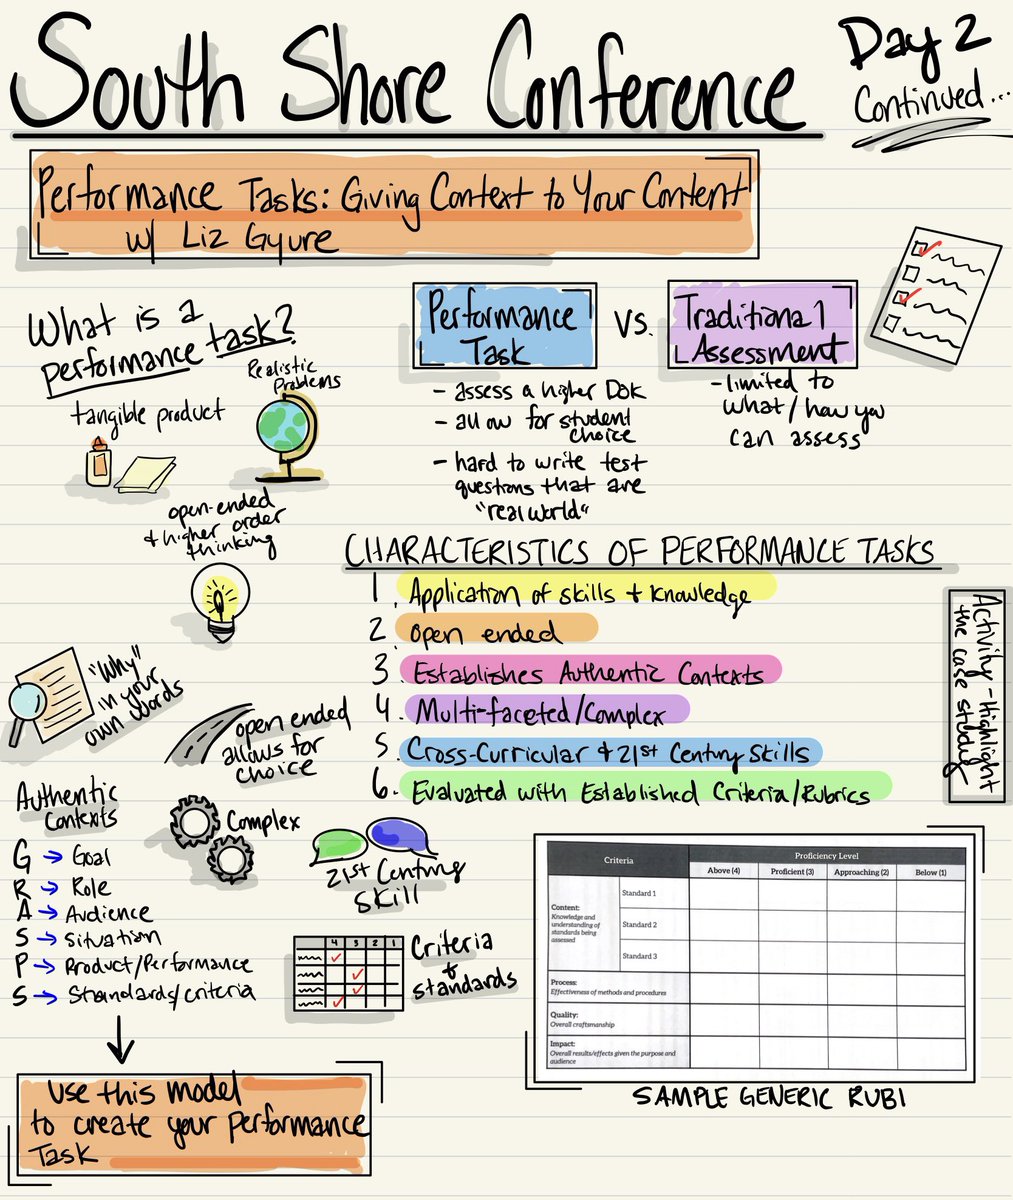 South Shore Conference
Day 2
Continued...
Performance Tasks: Giving Context to Your Content
w/ Liz Gyure
What is a
performance task?
tangible product
Realistic
Problems
open-ended
& higher order
thinking
Performance
Task
vs.
Traditional
Assessment
- assess a higher DOK
- allow for student
choice
- hard to write test
questions that are
"real world"
- limited to
what/how you
can assess
CHARACTERISTICS OF PERFORMANCE TASKS
1. Application of skills + knowledge
2. open ended
3. Establishes Authentic Contexts
4. Multi-faceted/Complex
5. Cross-Curricular & 21st Century Skills
6. Evaluated with Established Criteria/Rubrics
Activity-Highlight
the case study
"Why"
in your
own words
open ended
allows for
choice
Complex
21st Century
Skill
Authentic
Contexts
G → Goal
R → Role
A → Audience
S → Situation
P → Product/Performance
S → Standards/criteria
4 3 2 1
Criteria
+
standards
use this model
to create your performance
Task
Criteria
Proficiency Level
Above (4) Proficient (3) Approaching (2) Below (1)
Content:
Knowledge and
understanding of
standards being
assessed
Standard 1
Standard 2
Standard 3
Process:
Effectiveness of methods and procedures
Quality:
Overall craftsmanship
Impact:
Overall results/effects given the purpose and
audience
SAMPLE GENERIC RUBI